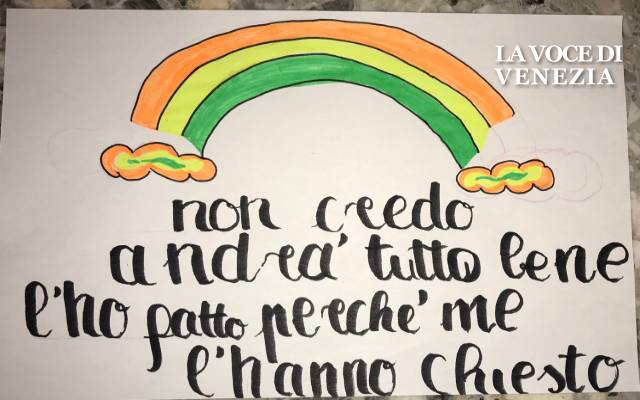 LA VOCE DI
VENEZIA
non credo
andrà tutto bene
l'ho fatto perché me
l'hanno chiesto